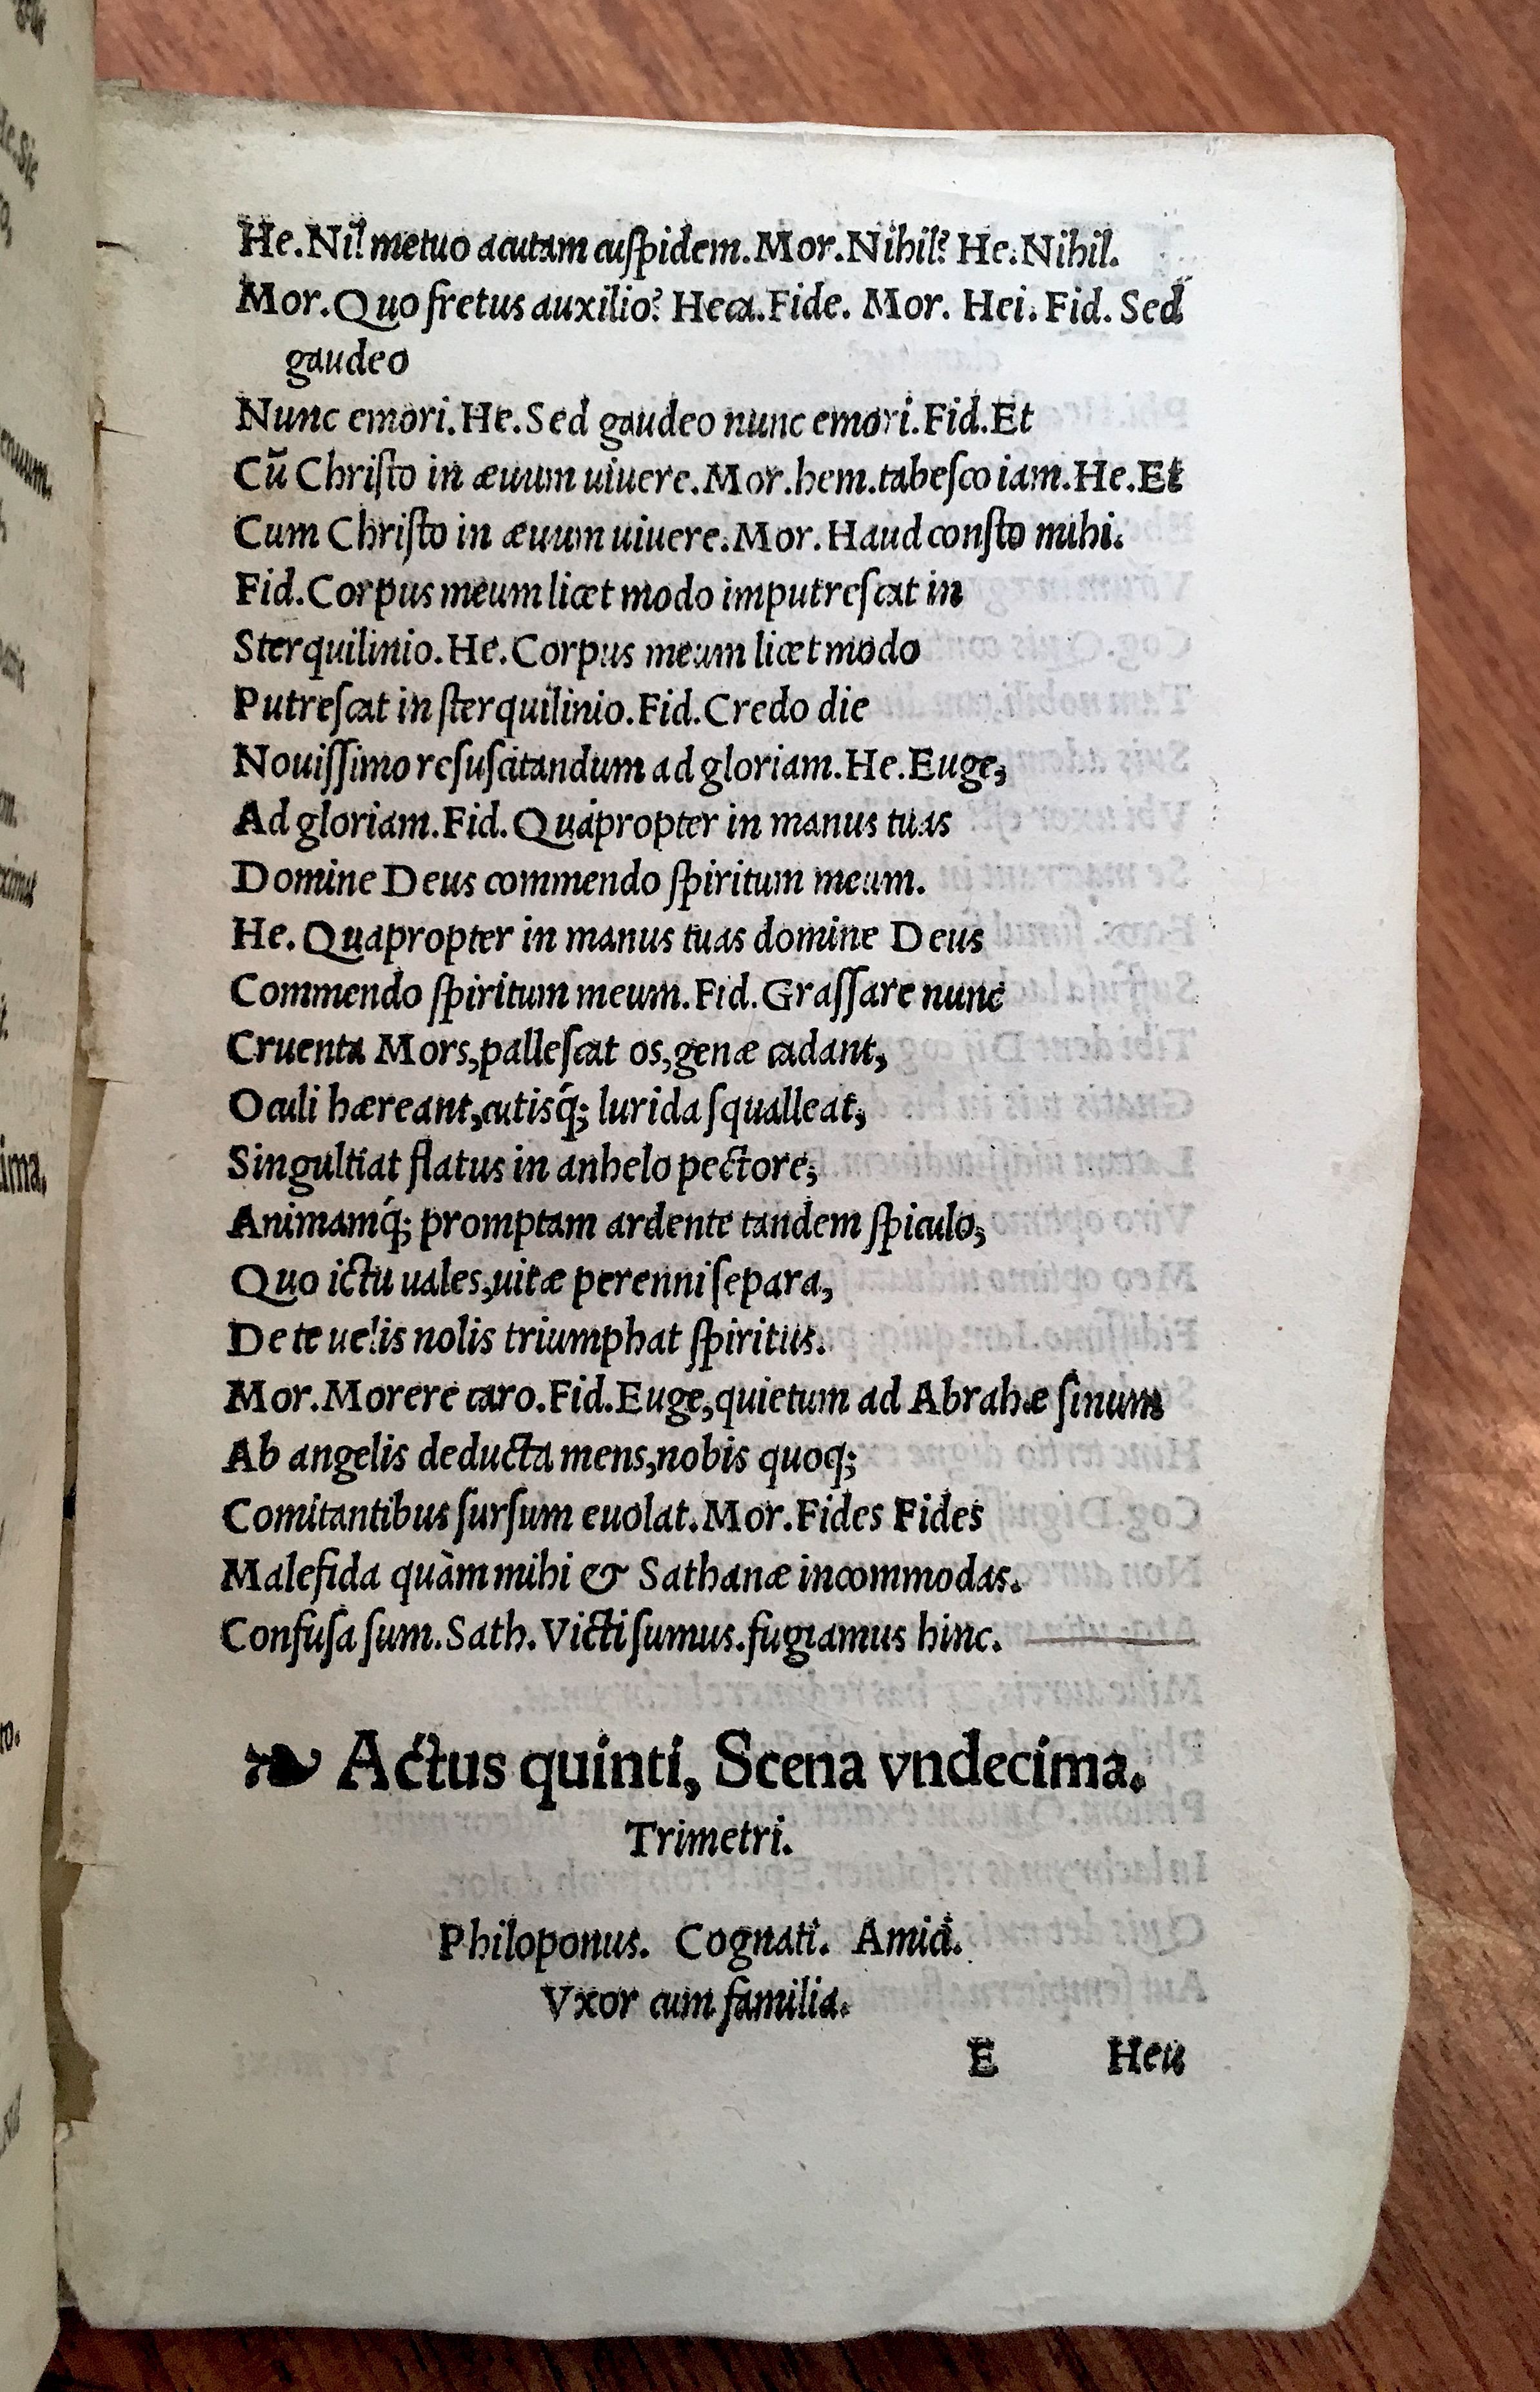 He.Nil metuo acutam cuſpidem.Mor.Nihil? He.Nihil.
Mor.Quo fretus auxilio? Heca.Fide. Mor. Hei. Fid. Sed
gaudeo
Nunc emori.He.Sed gaudeo nunc emori.Fid.Et
Cũ Chriſto in æuum uiuere.Mor.hem.tabeſco iam.He.Et
Cum Chriſto in æuum uiuere.Mor.Haud conſto mihi.
Fid.Corpus meum licet modo imputreſcat in
Sterquilinio.He.Corpus meum licet modo
Putreſcat in ſterquilinio.Fid.Credo die
Nouiſſimo reſuſcitandum ad gloriam.He.Euge,
Ad gloriam.Fid.Quapropter in manus tuas
Domine Deus commendo ſpiritum meum.
He.Quapropter in manus tuas domine Deus
Commendo ſpiritum meum.Fid.Graſſare nunc
Cruenta Mors,palleſcat os,genæ cadant,
Oculi hæreant,cutisq́; lurida ſqualleat,
Singultiat flatus in anhelo pectore,
Animamq́; promptam ardente tandem ſpiculo,
Quo ictu uales,uitæ perenni ſepara,
De te uelis nolis triumphat ſpiritus.
Mor.Morere caro.Fid.Euge,quietum ad Abrahæ ſinum
Ab angelis deducta mens,nobis quoq;
Comitantibus ſurſum euolat.Mor.Fides Fides
Malefida quàm mihi & Sathanæ incommodas.
Confuſa ſum.Sath.Victi ſumus.fugiamus hinc.
❧ Actus quinti, Scena vndecima.
Trimetri.
Philoponus. Cognati. Amici.
Vxor cum familia.
E Heu